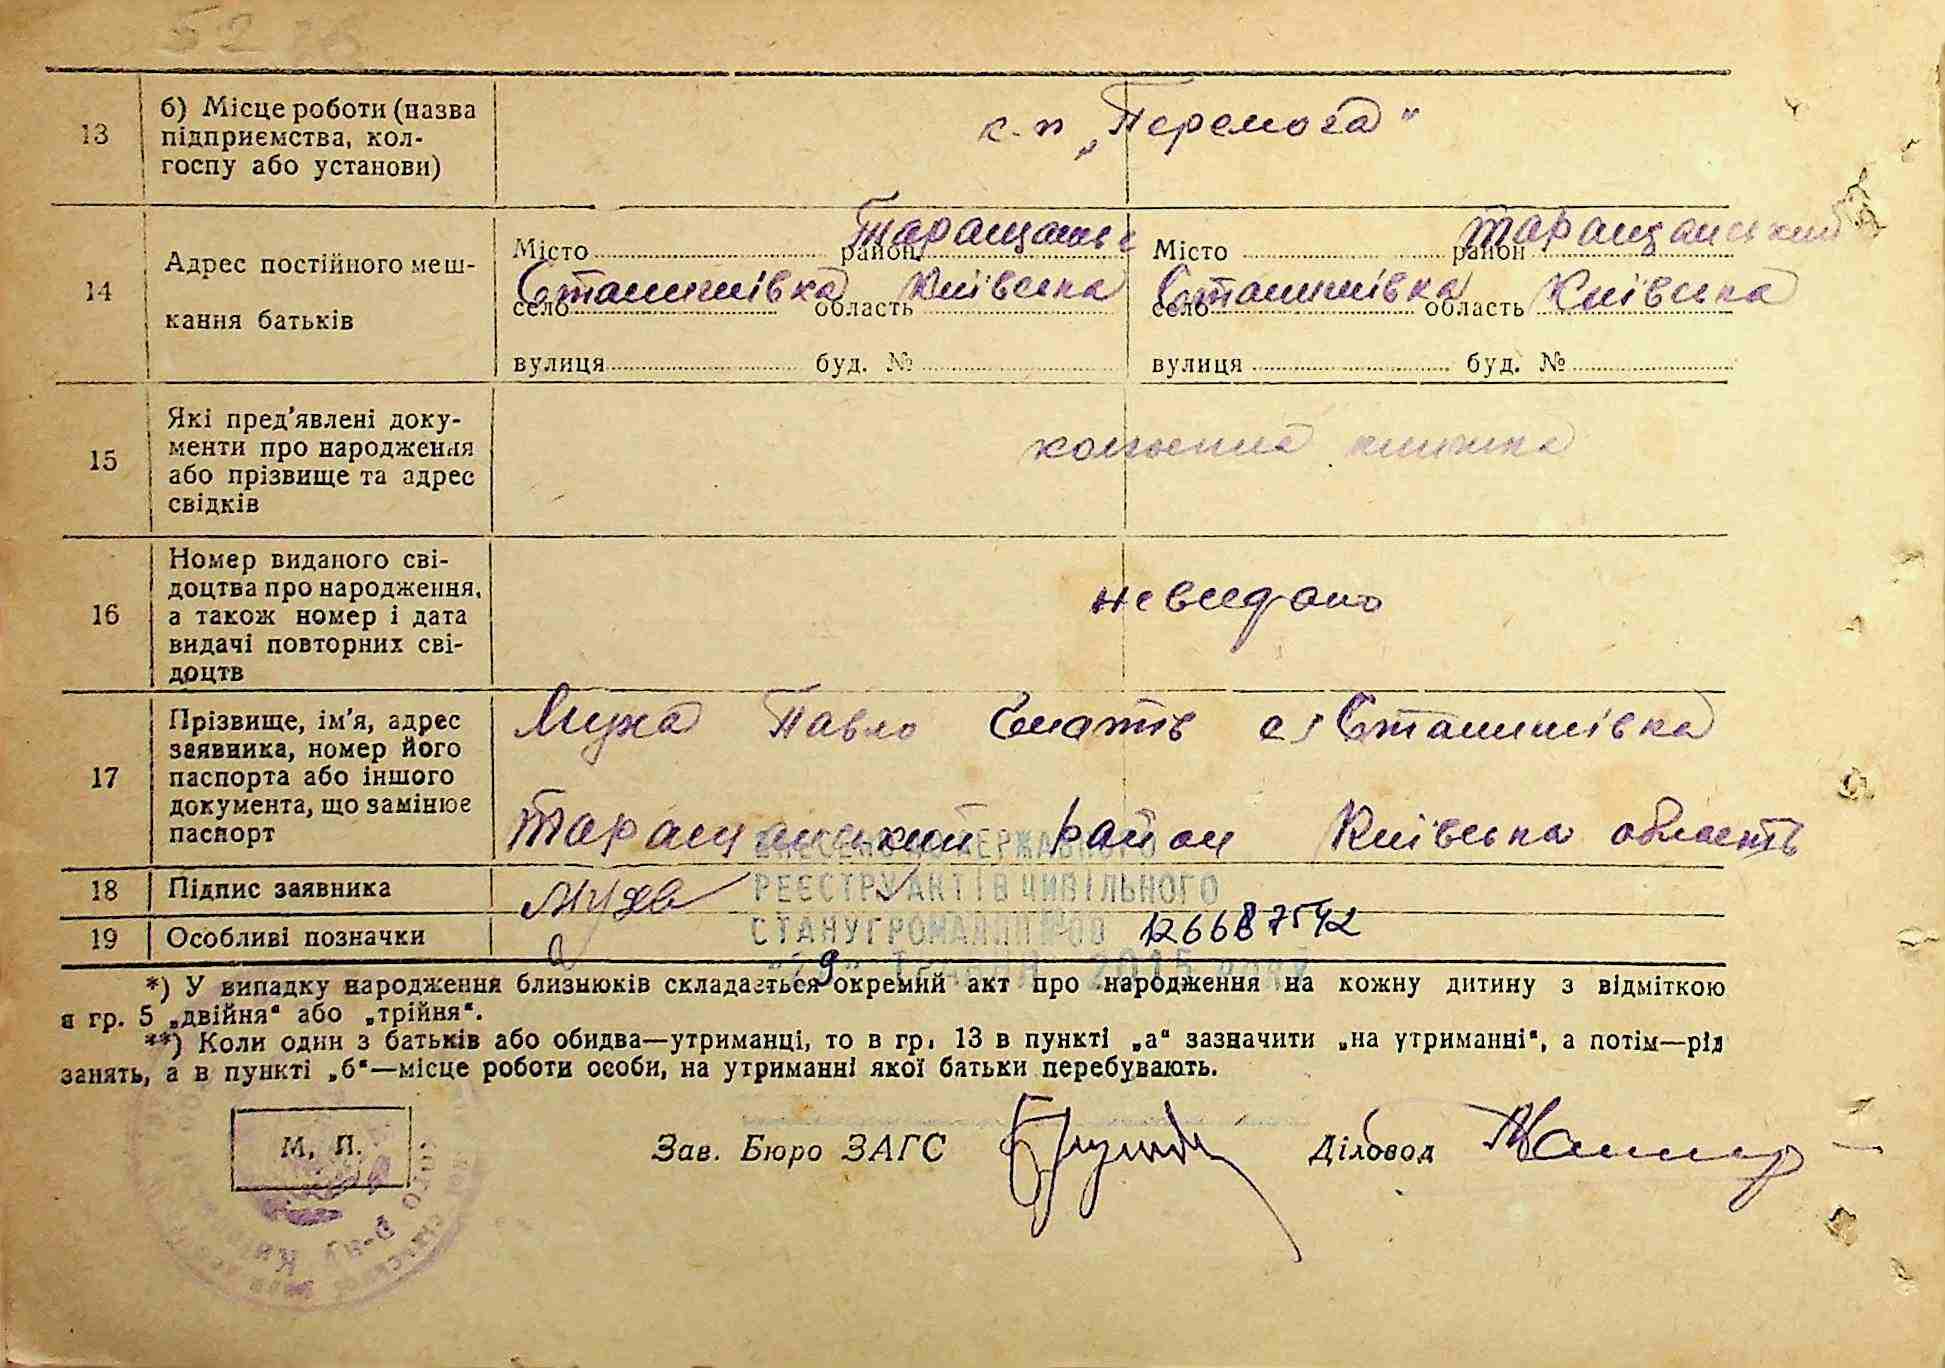 13
б) Місце роботи (назва
підприємства, кол-
госпу або установи)
к. п „Перемога"
14
Адрес постійного меш-
кання батьків
Місто район Таращанс
село Станишівка область Київська
вулиця буд. №
Місто район Таращанський
село Станишівка область Київська
вулиця буд. №
15
Які пред'явлені доку-
менти про народження
або прізвище та адрес
свідків
книжка
16
Номер виданого сві-
доцтва про народження,
а також номер і дата
видачі повторних сві-
доцтв
невидано
17
Прізвище, ім'я, адрес
заявника, номер його
паспорта або іншого
документа, що замінює
паспорт
Муха Павло с/ Станишівка
Таращанський район Київська область
18
Підпис заявника
Муха
19
Особливі позначки
ВНЕСЕНО ДО ДЕРЖАВНОГО
РЕЄСТРУ АКТІВ ЦИВІЛЬНОГО
СТАНУ ГРОМАДЯН ПІД № 00 126687542
"29" травня 2015 року
*) У випадку народження близнюків складається окремий акт про народження на кожну дитину з відміткою
в гр. 5 „двійня" або „трійня".
**) Коли один з батьків або обидва—утриманці, то в гр. 13 в пункті „а" зазначити „на утриманні", а потім—рід
занять, а в пункті „б"—місце роботи особи, на утриманні якої батьки перебувають.
М. П.
Зав. Бюро ЗАГС
Діловод